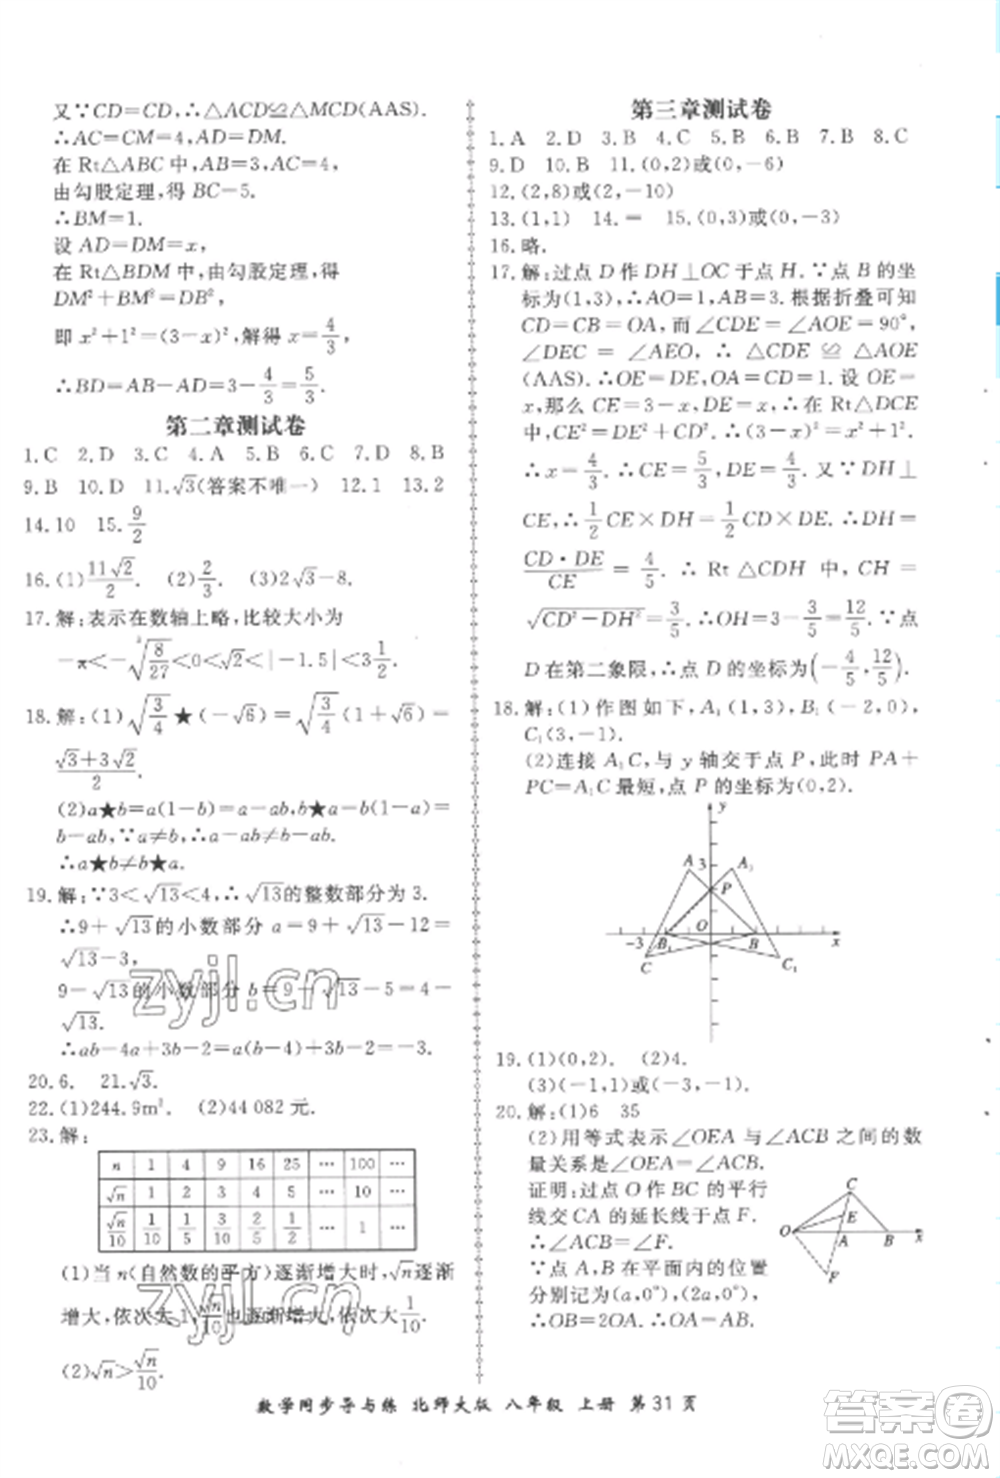 又∵CD=CD,∴△ACD≌△MCD(AAS).
∴AC=CM=4,AD=DM.
在 Rt△ABC 中,AB=3,AC=4,
由勾股定理,得 BC=5.
∴BM=1.
设 AD=DM=x,
在 Rt△BDM 中,由勾股定理,得
DM²+BM²=DB²,
即 x²+1²=(3-x)²,解得 x=4/3,
∴BD=AB-AD=3-4/3=5/3.
第二章测试卷
1.C 2.D 3.C 4.A 5.B 6.C 7.D 8.B
9.B 10.D 11.√3(答案不唯一) 12.1 13.2
14.10 15.9/2
16.(1)11√2/2. (2)2/3. (3)2√3-8.
17.解:表示在数轴上略,比较大小为
-π<-³√(8/27)<0<√2<|-1.5|<√3.
18.解:(1)√(3/4)★(-√6)=√(3/4)×(1+√6)=
(√3+3√2)/2.
(2)a★b=a(1-b)=a-ab,b★a=b(1-a)=
b-ab,∵a≠b,∴a-ab≠b-ab.
∴a★b≠b★a.
19.解:∵3<√13<4,∴√13的整数部分为 3.
∴9+√13的小数部分 a=9+√13-12=
√13-3,
9-√13的小数部分 b=9-√13-5=4-
√13.
∴ab-4a+3b=ab-4a+3b-12+12=-3.
20.6. 21.√3.
22.(1)244.9m². (2)44 082 元.
23.解:
n 1 4 9 16 25 … 100 …
√n 1 2 3 4 5 … 10 …
√n/10 1/10 1/5 3/10 2/5 1/2 … 1 …
(1)当 n(自然数的平方)逐渐增大时,√n逐渐
增大,依次大 1,√n/10也逐渐增大,依次大1/10.
(2)√n>√n/10.
第三章测试卷
1.A 2.D 3.B 4.C 5.B 6.B 7.B 8.C
9.D 10.B 11.(0,2)或(0,-6)
12.(2,8)或(2,-10)
13.(1,1) 14.= 15.(0,3)或(0,-3)
16.略.
17.解:过点 D 作 DH⊥OC于点 H.∵点 B 的坐
标为(1,3),∴AO=1,AB=3.根据折叠可知
CD=CB=OA,而∠CDE=∠AOE=90°,
∠DEC=∠AEO,∴△CDE≌△AOE
(AAS).∴OE=DE,OA=CD=1.设 OE=
x,那么 CE=3-x,DE=x.∴在 Rt△DCE
中,CE²=DE²+CD².∴(3-x)²=x²+1².
∴x=4/3.∴OE=4/3,CE=3-4/3=5/3.又∵DH⊥
CE,∴1/2CE×DH=1/2CD×DE.∴DH=
CD·DE/CE=4/5.∴Rt△CDH 中,CH=
√(CD²-DH²)=3/5.∴OH=3-3/5=12/5.∵点
D在第二象限,∴点 D 的坐标为(-4/5,12/5).
18.解:(1)作图如下,A₁(1,3),B₁(-2,0),
C₁(3,-1).
(2)连接 A₁C,与 y 轴交于点 P,此时 PA+
PC=A₁C 最短,点 P 的坐标为(0,2).
y
A 3 A₁
P
O
-3 B₁ B x
C C₁
19.(1)(0,2). (2)4.
(3)(-1,1)或(-3,-1).
20.解:(1)6 35
(2)用等式表示∠OEA与∠ACB 之间的数
量关系是∠OEA=∠ACB.
证明:过点 O 作 BC 的平行
线交 CA 的延长线于点 F.
∴∠ACB=∠F.
∵点 A,B 在平面内的位置
分别记为(a,0°),(2a,0°),
∴OB=2OA.∴OA=AB.
C
E
O A B x
F
数学同步导与练 北师大版 八年级 上册 第31页
zyjl.cn
zyjl.cn
答案圈
MXQE.COM